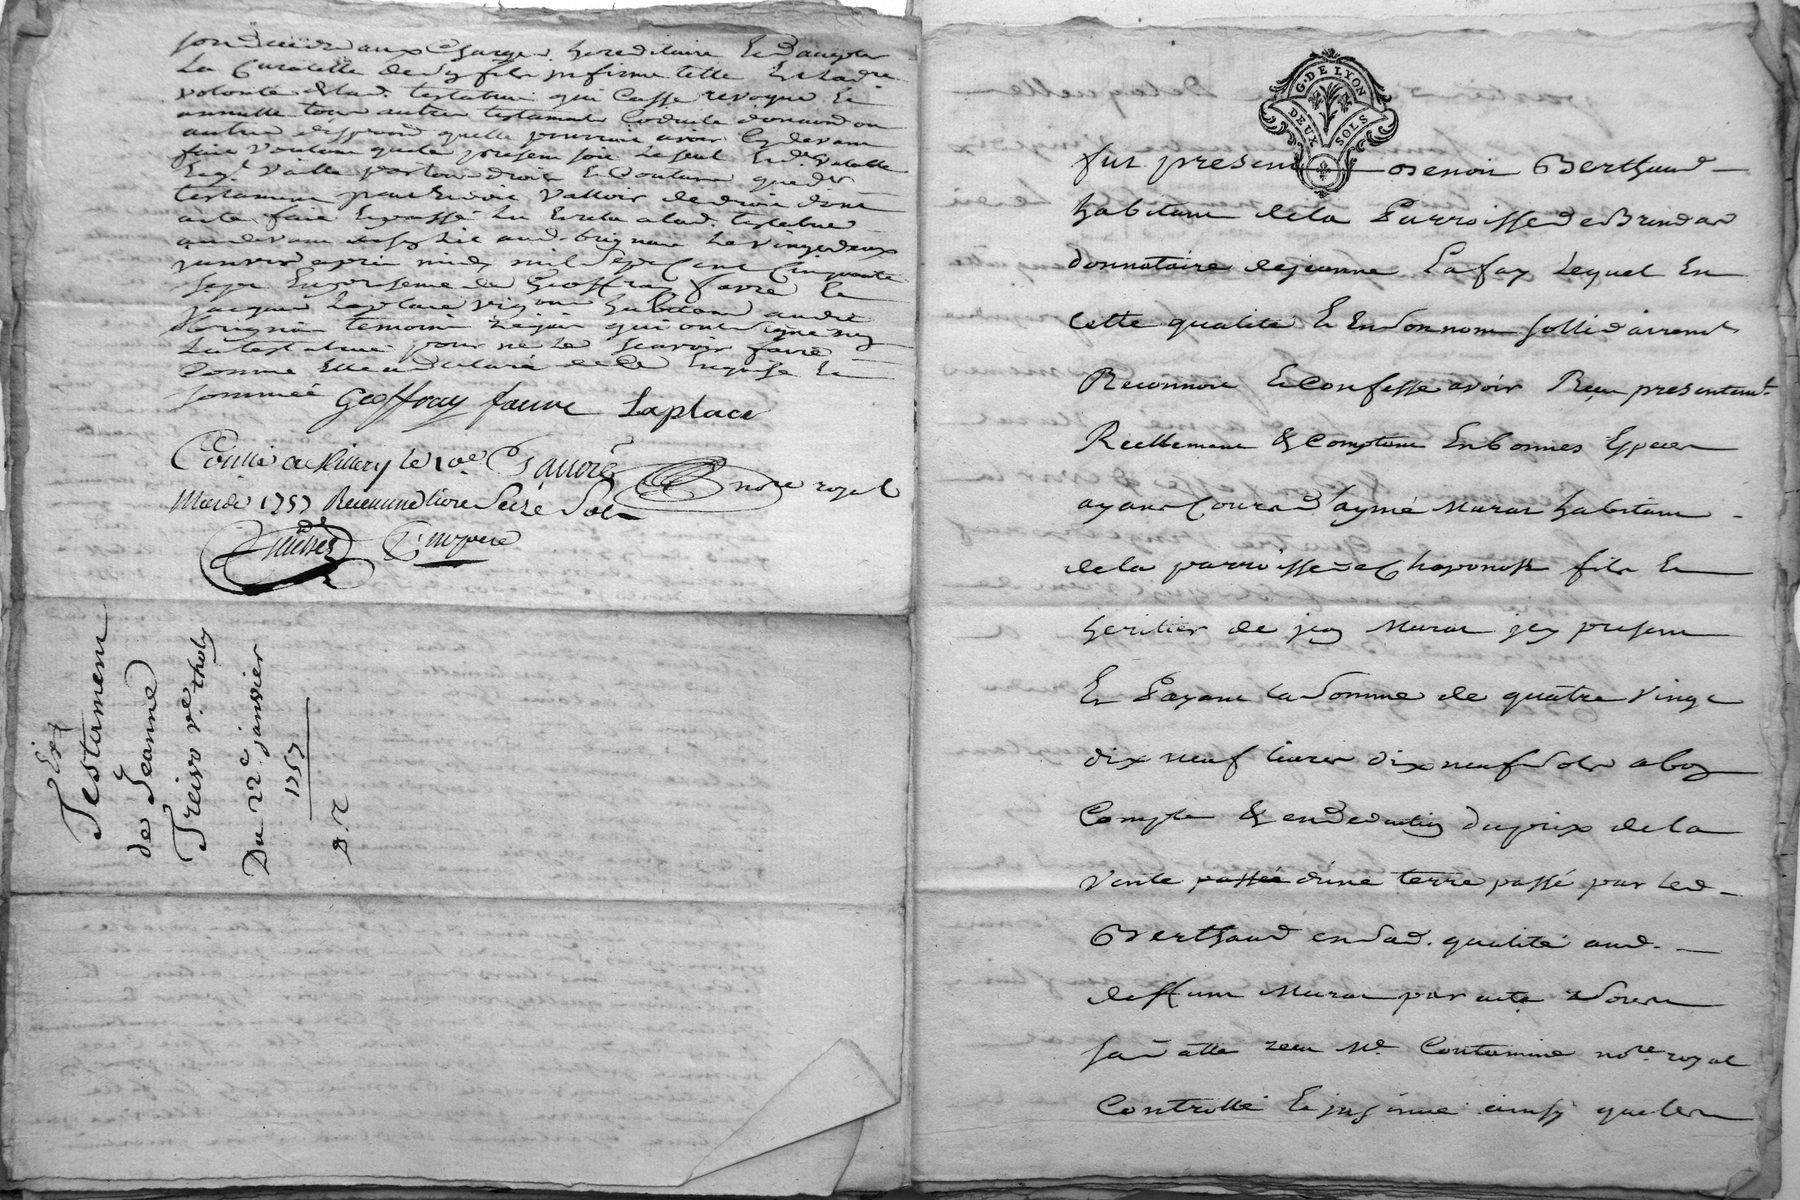 aux charges hereditaire et
La Curatelle de fils infirme telle Est la de
volonté testatrice qui Casse revoque Et
annulle tous autres testaments Codicile donation ou
autres quelle pourroit avoir Cy devant
fait voulant que le present soit le seul vallable
vaille par tous droits Et Coutume que
testament peut Et doit valloir de droit dont
acte fait Et passé Lu Et relu a lad. testatrice
aud. brignais Le vingt deux
janvier apres midy mil Sept Cent Cinquante
Sept En presence de Geoffray favre Et
Jacques Laplace vigneron habitant audit
brignais temoins qui ont signé non
La testatrice pour ne le scavoir faire
Comme Elle a declaré de ce Enquise Et
sommée Geoffray faure Laplace
Conllé a Millery le
Mars 1757 Reçu une livre Seize Sols
nore royal
Exp
Testament
de Jeanne
Treivo ve. tholy
Du 22e janvier
1757
G. DE LYON
DEUX SOLS
fut present Benoit Berthaud
habitant de la Parroisse de Brindas
donnataire de jeanne Lafay Lequel En
cette qualité Et En son nom sollidairement
Reconnoit Et Confesse avoir Reçu presentemt.
Reellement & Comptant En bonnes Especes
ayant Cours d'aymé Murat habitant
de la parroisse de Chaponost fils Et
heritier de jean Murat icy present
Et Payant la somme de quatre vingt
dix neuf livres dix neuf sols a bon
Compte & en deduction du prix de la
vente passée d'une terre passé par led.
Berthaud en sad. qualité aud.
deffunt Murat par acte
sa datte reçu Me. Contamine nore. royal
Controllé Et insinué ainsy que les